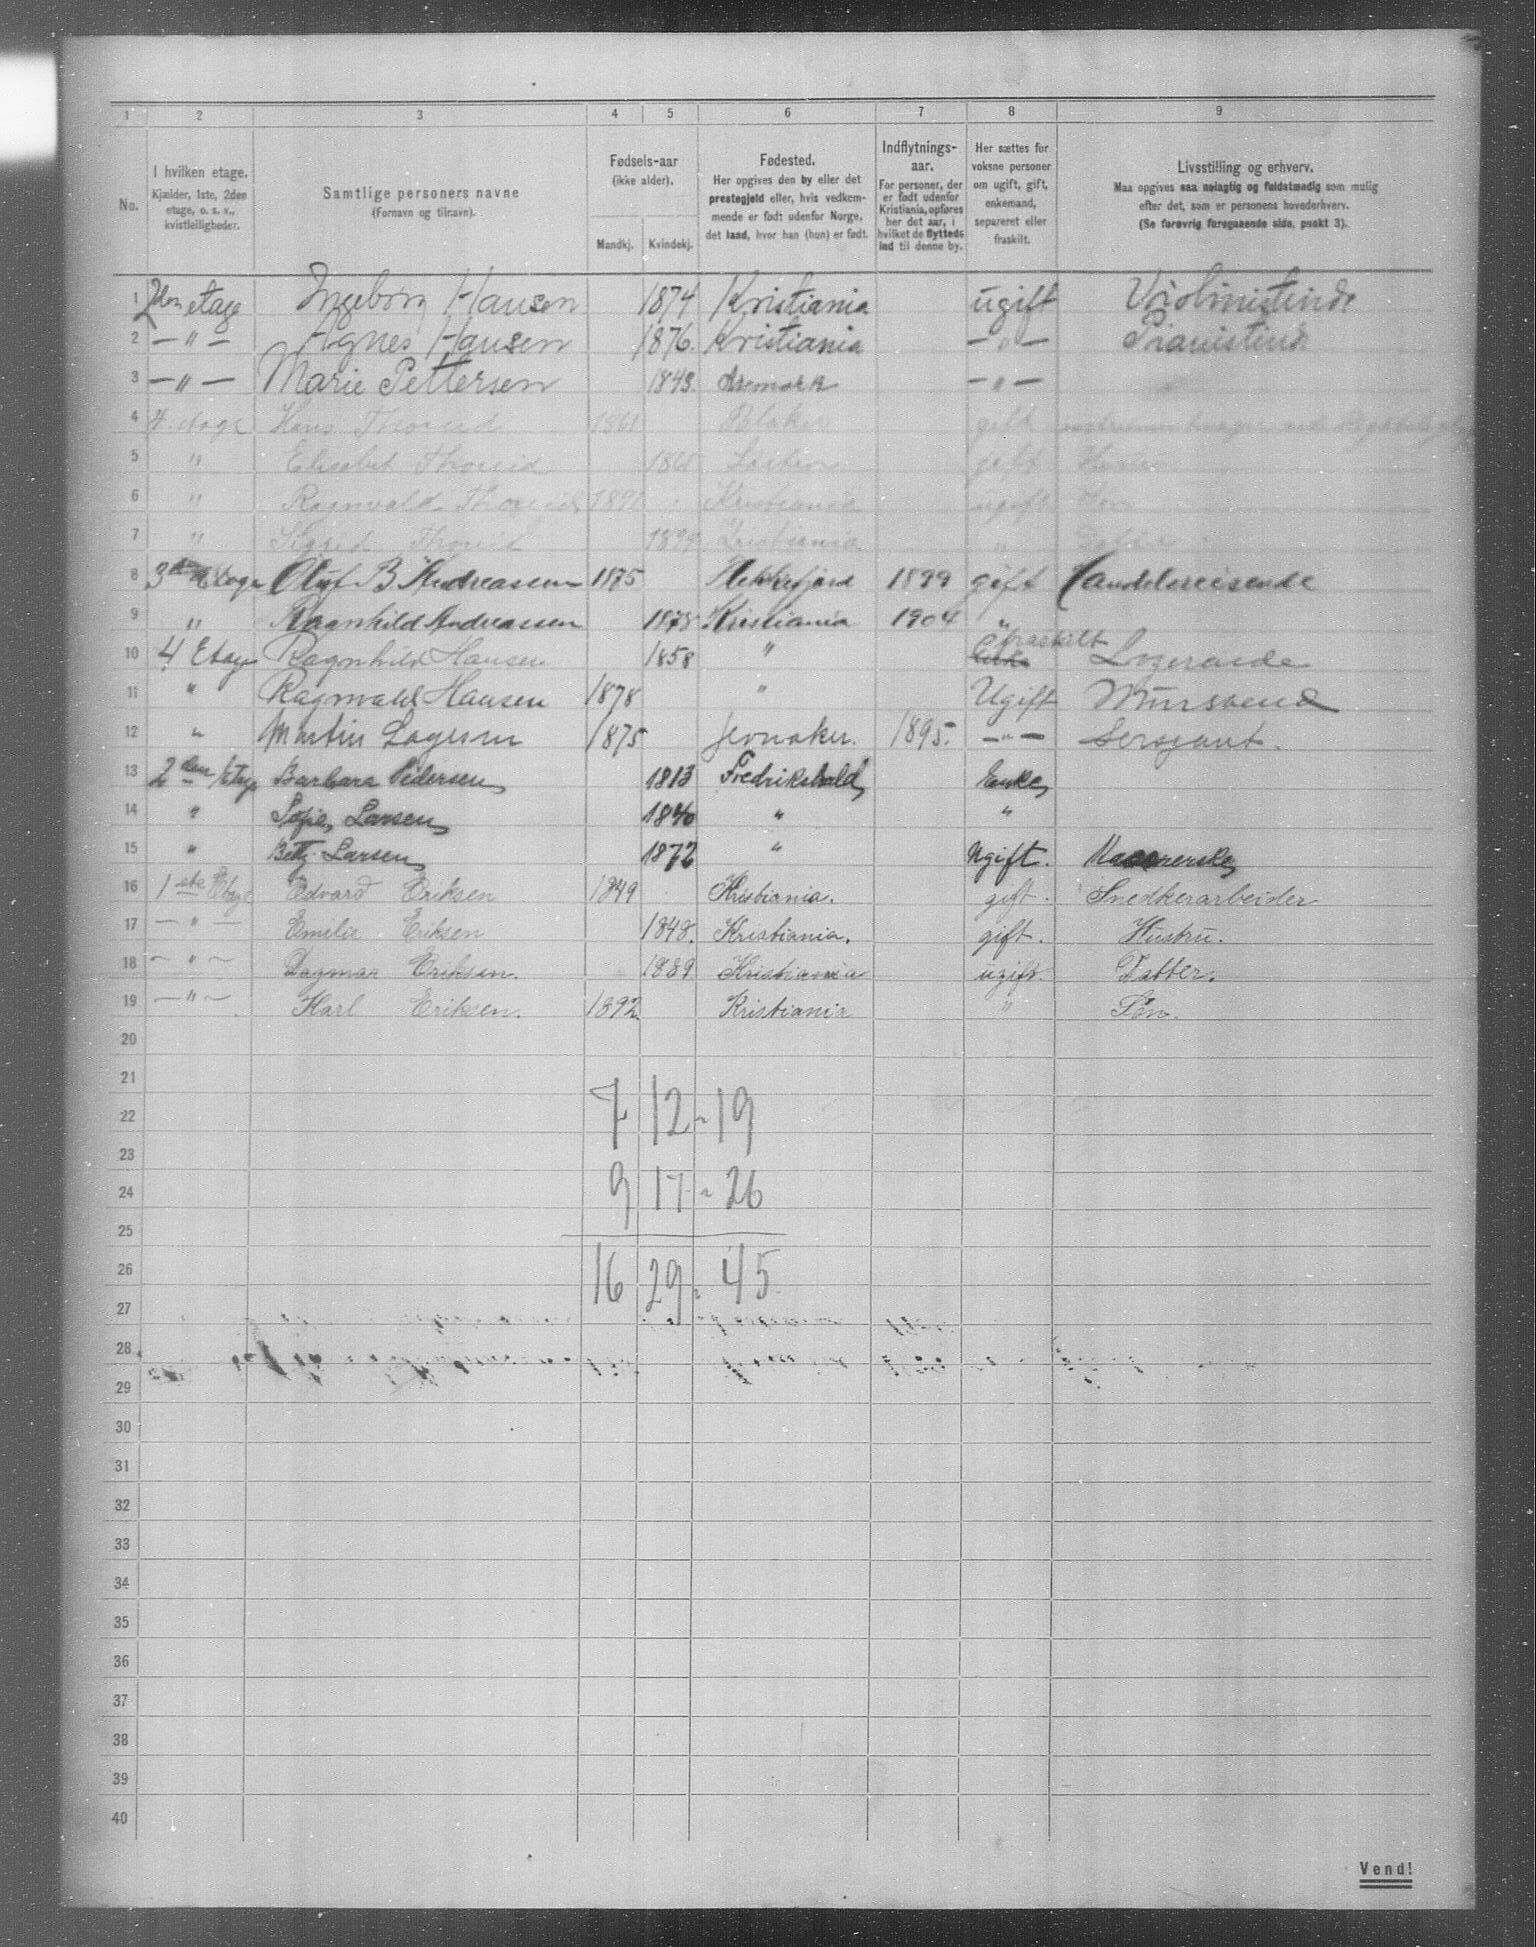 1 2 3 4 5 6 7 8 9
No. I hvilken etage. Kjælder, 1ste, 2den etage, o. s. v., kvistleiligheder. Samtlige personers navne (Fornavn og tilnavn). Fødsels-aar (ikke alder). Mandkj. Kvindekj. Fødested. Her opgives den by eller det prestegjeld eller, hvis vedkommende er født udenfor Norge, det land, hvor han (hun) er født. Indflytnings-aar. For personer, der er født udenfor Kristiania, opføres her det aar, i hvilket de flyttede ind til denne by. Her sættes for voksne personer om ugift, gift, enkemand, separeret eller fraskilt. Livsstilling og erhverv. Maa opgives saa nøiagtig og fuldstændig som mulig efter det, som er personens hovederhverv. (Se forøvrig foregaaende side, punkt 3).
1 2den etage Ingeborg Hansen 1874 Kristiania ugift Violinistinde
2 — " — Agnes Hansen 1876. Kristiania — " — Pianistinde
3 — " — Marie Pettersen 1843. Aremark — " —
4 4. etage Hans 1861 Blaker gift
5 " Elisabet gift
6 " Ragnvald Kristiania ugift Søn
7 " Sigrid Kristiania " Datter
8 3die Etage Oluf B. Andreassen 1875 Flekkefjord 1899 gift Handelsreisende
9 " Ragnhild Andreassen 1878 Kristiania 1904 "
10 4 Etage Ragnhild Hansen 1858 " Enke fraskilt Logerende
11 " Ragnvald Hansen 1878 " Ugift Mursvend
12 " Martin 1875 Jevnaker. 1895. — " — Sergeant.
13 2den Etage Barbara Pedersen 1813 Fredrikshald Enke
14 " Sofie Larsen 1840 " "
15 " Betty Larsen 1872 " Ugift.
16 1ste Etage Edvard Eriksen 1849 Kristiania. gift. Snedkerarbeider
17 — " — Emilie Eriksen 1848. Kristiania. gift. Hustru.
18 — " — Dagmar Eriksen. 1889 Kristiania ugift. Datter.
19 — " — Karl Eriksen. 1892. Kristiania " Søn.
20
21
22 7 12 - 19
23
24 9 17 - 26
25
26 16 29. 45.
27
28
29
30
31
32
33
34
35
36
37
38
39
40
Vend!